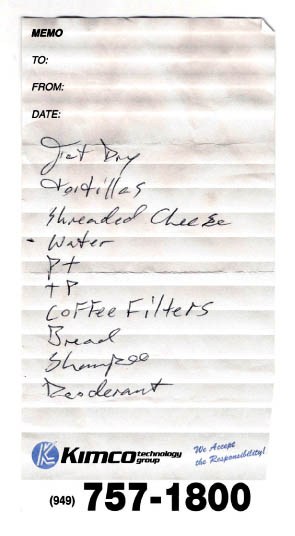 MEMO
TO:
FROM:
DATE:
Jet Dry
Tortillas
Shreaded Cheese
- Water
PT
TP
Coffee Filters
Bread
Shampoo
Deoderant
K Kimco technology group
We Accept the Responsibility!
(949) 757-1800